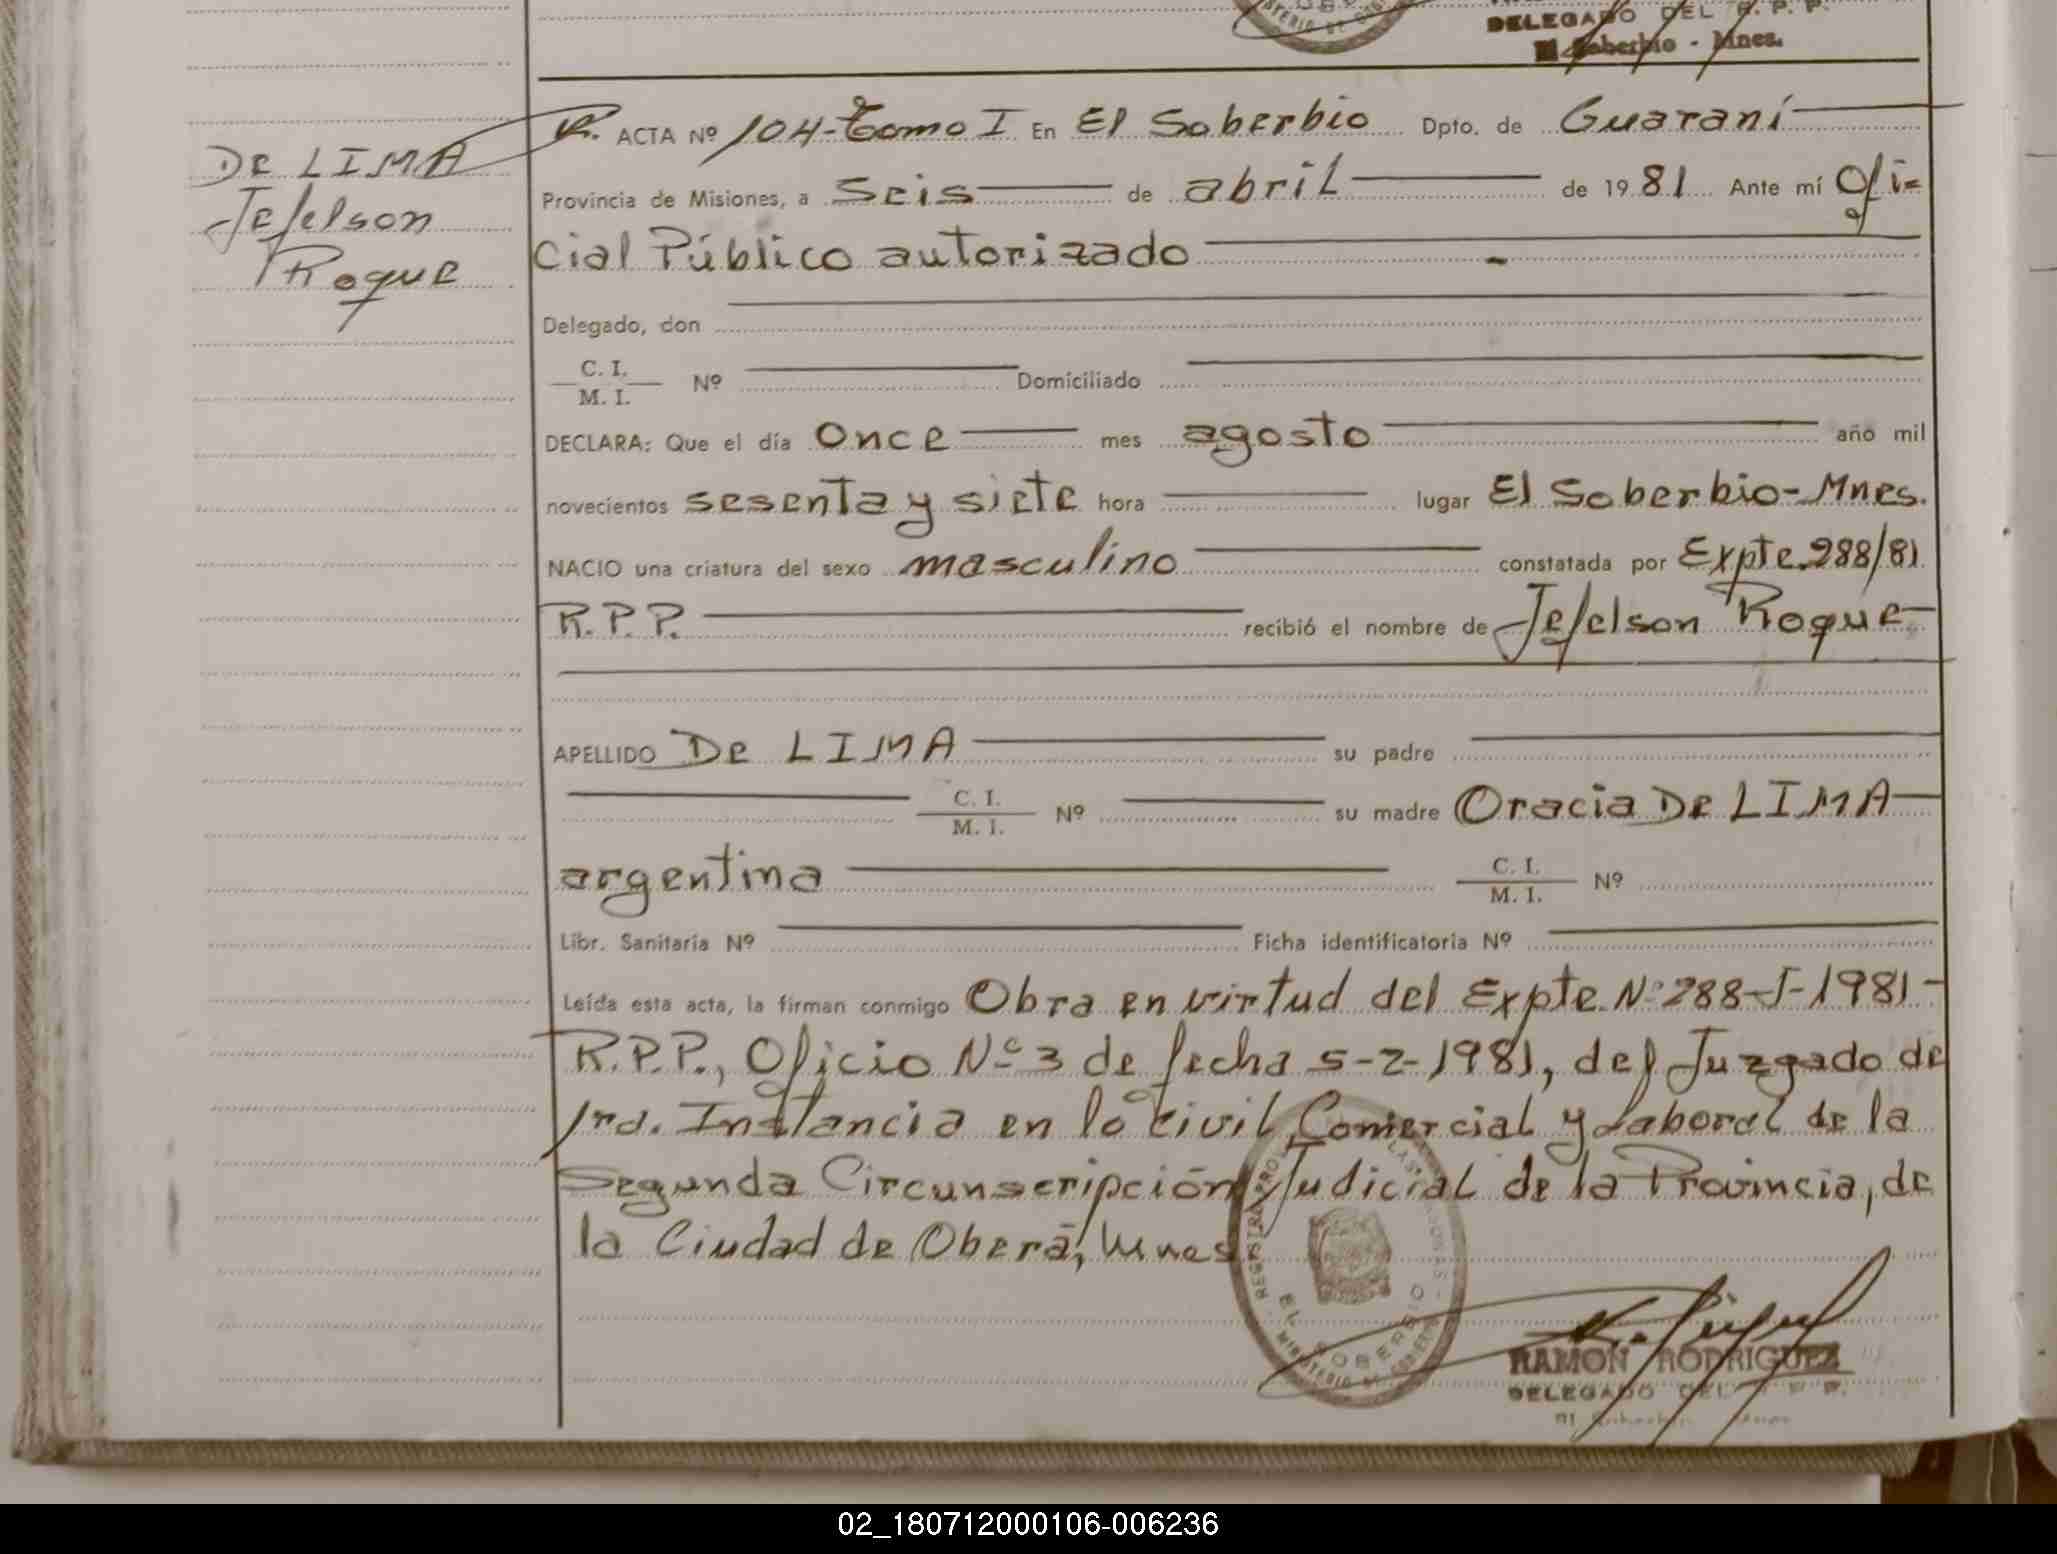 DELEGADO DEL R. P. P.
El Soberbio - Mnes.
R. ACTA Nº 104-Tomo I En El Soberbio Dpto. de Guaraní
DE LIMA
Jefelson
Roque
Provincia de Misiones, a Seis de abril de 1981 Ante mí Ofi=
cial Público autorizado
Delegado, don
C. I.
M. I. Nº Domiciliado
DECLARA: Que el día Once mes agosto año mil
novecientos sesenta y siete hora lugar El Soberbio-Mnes.
NACIO una criatura del sexo masculino constatada por Expte.288/81
R.P.P. recibió el nombre de Jefelson Roque
APELLIDO De LIMA su padre
C. I.
M. I. Nº su madre Oracia De LIMA
argentina C. I.
M. I. Nº
Libr. Sanitaria Nº Ficha identificatoria Nº
Leída esta acta, la firman conmigo Obra en virtud del Expte.Nº288-J-1981-
R.P.P., Oficio Nº3 de fecha 5-2-1981, del Juzgado de
1ra. Instancia en lo Civil, Comercial y Laboral de la
Segunda Circunscripción Judicial de la Provincia, de
la Ciudad de Oberá, Mnes.
EL SOBERBIO
RAMON RODRIGUEZ
DELEGADO DEL R. P. P.
02_180712000106-006236